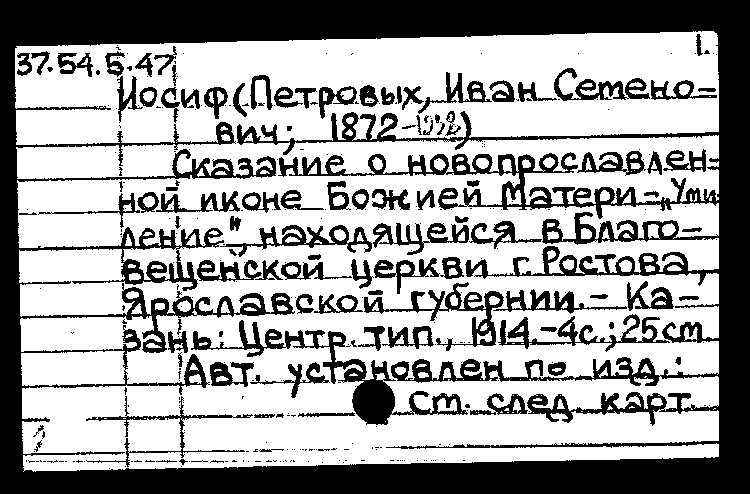 1.
37.54.5.47
Иосиф (Петровых, Иван Семено-
вич; 1872-1938)
Сказание о новопрославлен-
ной иконе Божией Матери - „Уми-
ление", находящейся в Благо-
вещенской церкви г. Ростова,
Ярославской губернии. - Ка-
зань: Центр. тип., 1914. - 4с.; 25см.
Авт. установлен по изд.:
См. след. карт.